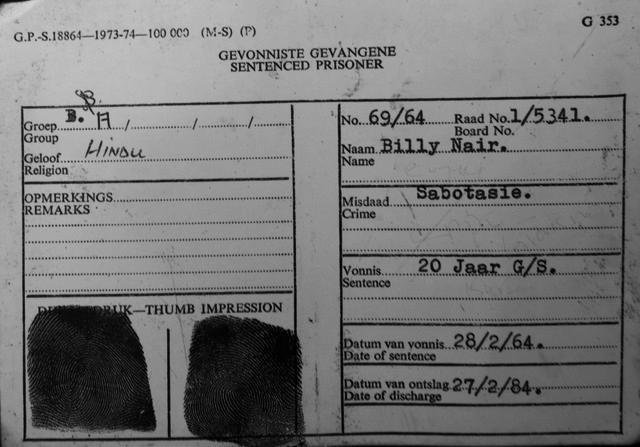 G.P.-S.18864—1973-74—100 000 (M-S) (P)
G 353
GEVONNISTE GEVANGENE
SENTENCED PRISONER
B.
Groep B. A / / /
Group
Geloof HINDU
Religion
OPMERKINGS
REMARKS
DRUK—THUMB IMPRESSION
No. 69/64 Raad No. 1/5341.
Board No.
Naam Billy Nair.
Name
Misdaad Sabotasie.
Crime
Vonnis 20 Jaar G/S.
Sentence
Datum van vonnis 28/2/64.
Date of sentence
Datum van ontslag 27/2/84.
Date of discharge